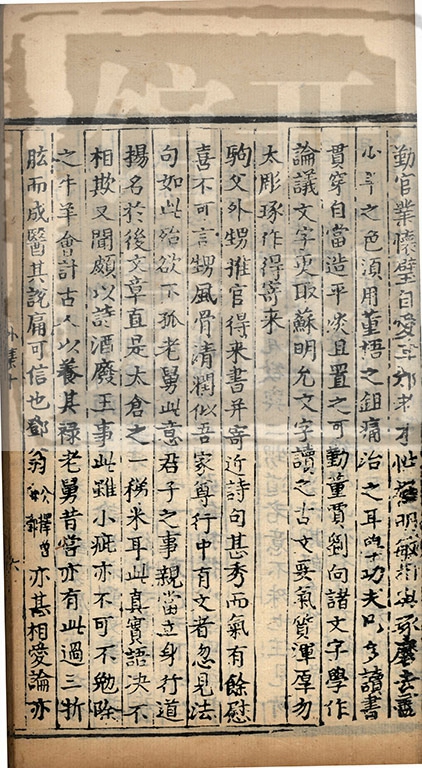 勤官業懷璧自愛耳外老才性甚明敏
心耳之色須用董悟之鉏痛治之耳學功夫以多讀書
貫穿自當造平淡且置之可勤董賈劉向諸文字學作
論議文字更取蘇明允文字讀之古文要氣質渾厚勿
太彫琢作得寄来
駒父外甥推官得来書并寄近詩句甚秀而氣有餘慰
喜不可言甥風骨清潤似吾家尊行中有文者忽見法
句如此殆欲不孤老舅此意君子之事親當立身行道
揚名於後文章直是太倉之一稊米耳此真實語决不
相欺又聞頗以詩酒廢王事此雖小疵亦不可不勉除
之牛羊會計古人以養其禄老舅昔嘗亦有此過三折
肱而成醫其說痛可信也鄧翁亦甚相愛論亦
外集十